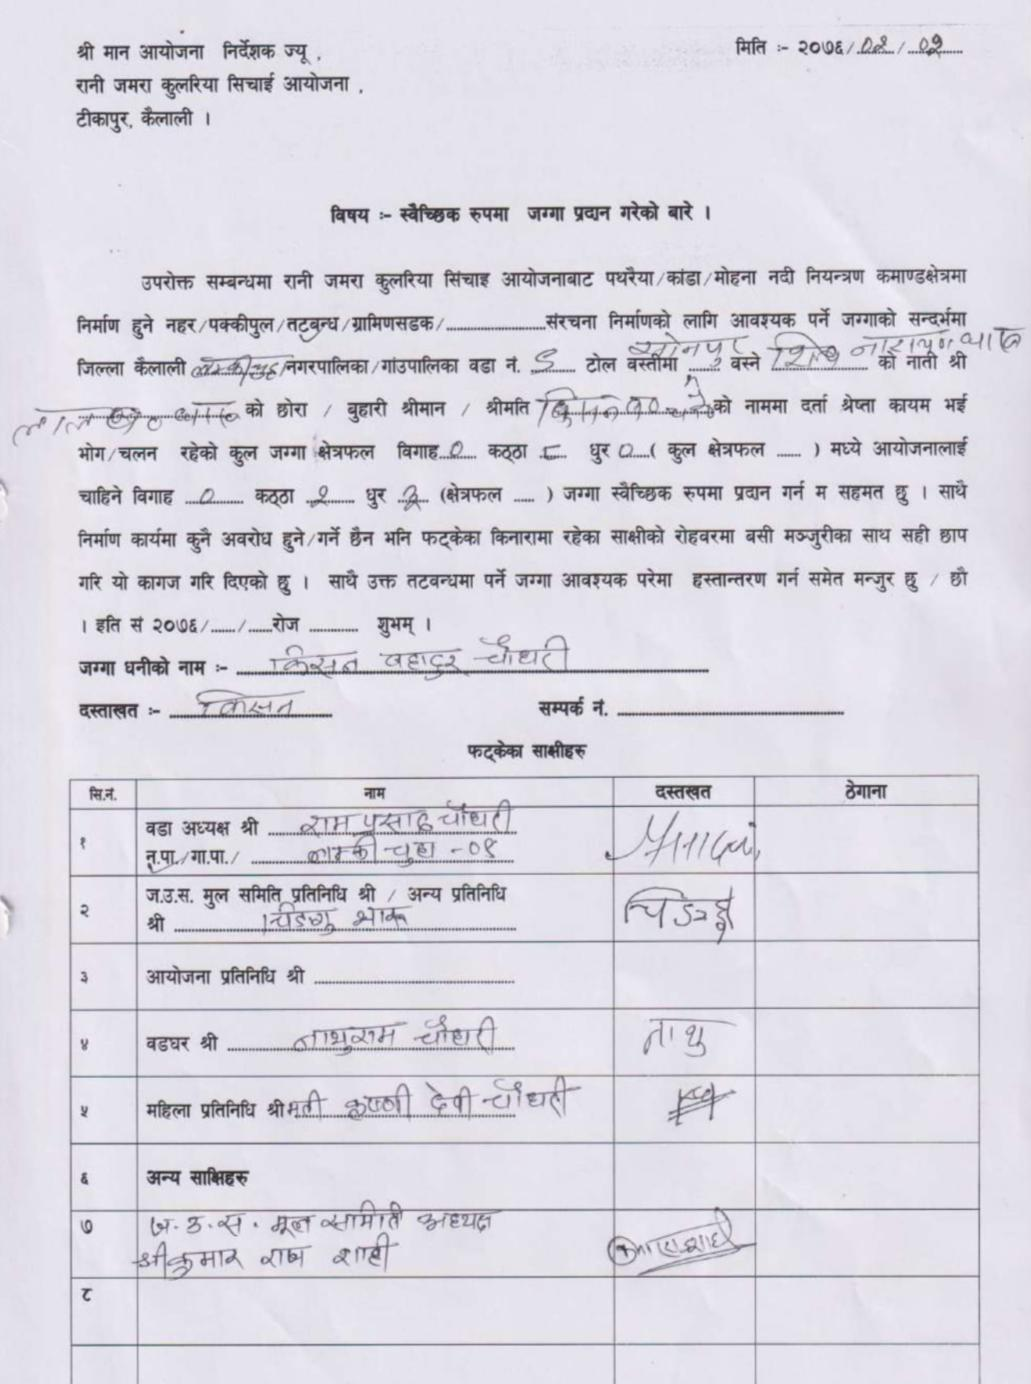 श्री मान आयोजना निर्देशक ज्यू ,
मिति :- २०७६/०२/०९
रानी जमरा कुलरिया सिचाई आयोजना ,
टीकापुर, कैलाली ।
विषय :- स्वैच्छिक रुपमा जग्गा प्रदान गरेको बारे ।
उपरोक्त सम्बन्धमा रानी जमरा कुलरिया सिंचाइ आयोजनाबाट पथरैया/कांडा/मोहना नदी नियन्त्रण कमाण्डक्षेत्रमा
निर्माण हुने नहर/पक्कीपुल/तटबन्ध/ग्रामिणसडक/....................संरचना निर्माणको लागि आवश्यक पर्ने जग्गाको सन्दर्भमा
जिल्ला कैलाली लम्कीचुहा नगरपालिका/गांउपालिका वडा नं. टोल वस्तीमा वस्ने को नाती श्री
को छोरा / बुहारी श्रीमान / श्रीमति को नाममा दर्ता श्रेष्ता कायम भई
भोग/चलन रहेको कुल जग्गा क्षेत्रफल विगाह ० कठ्ठा ८ धुर ० ( कुल क्षेत्रफल ...... ) मध्ये आयोजनालाई
चाहिने विगाह ० कठ्ठा २ धुर २ (क्षेत्रफल ..... ) जग्गा स्वैच्छिक रुपमा प्रदान गर्न म सहमत छु । साथै
निर्माण कार्यमा कुनै अवरोध हुने/गर्ने छैन भनि फट्केका किनारामा रहेका साक्षीको रोहवरमा बसी मञ्जुरीका साथ सही छाप
गरि यो कागज गरि दिएको छु । साथै उक्त तटवन्धमा पर्ने जग्गा आवश्यक परेमा हस्तान्तरण गर्न समेत मन्जुर छु / छौ
। इति सं २०७६/....../......रोज ............ शुभम् ।
जग्गा धनीको नाम :- किसन बहादुर चौधरी
दस्ताखत :- किसन सम्पर्क नं. ....................
फट्केका साक्षीहरु
सि.नं. नाम दस्तखत ठेगाना
१ वडा अध्यक्ष श्री राम प्रसाद चौधरी
न.पा./गा.पा./ लम्की चुहा -०९
२ ज.उ.स. मुल समिति प्रतिनिधि श्री / अन्य प्रतिनिधि
श्री
३ आयोजना प्रतिनिधि श्री ....................
४ वडघर श्री नाथुराम चौधरी नाथु
५ महिला प्रतिनिधि श्रीमती कृष्णी देवी चौधरी
६ अन्य साक्षिहरु
७ ज.उ.स. मूल समिति अध्यक्ष
श्री कुमार राज शाही
८